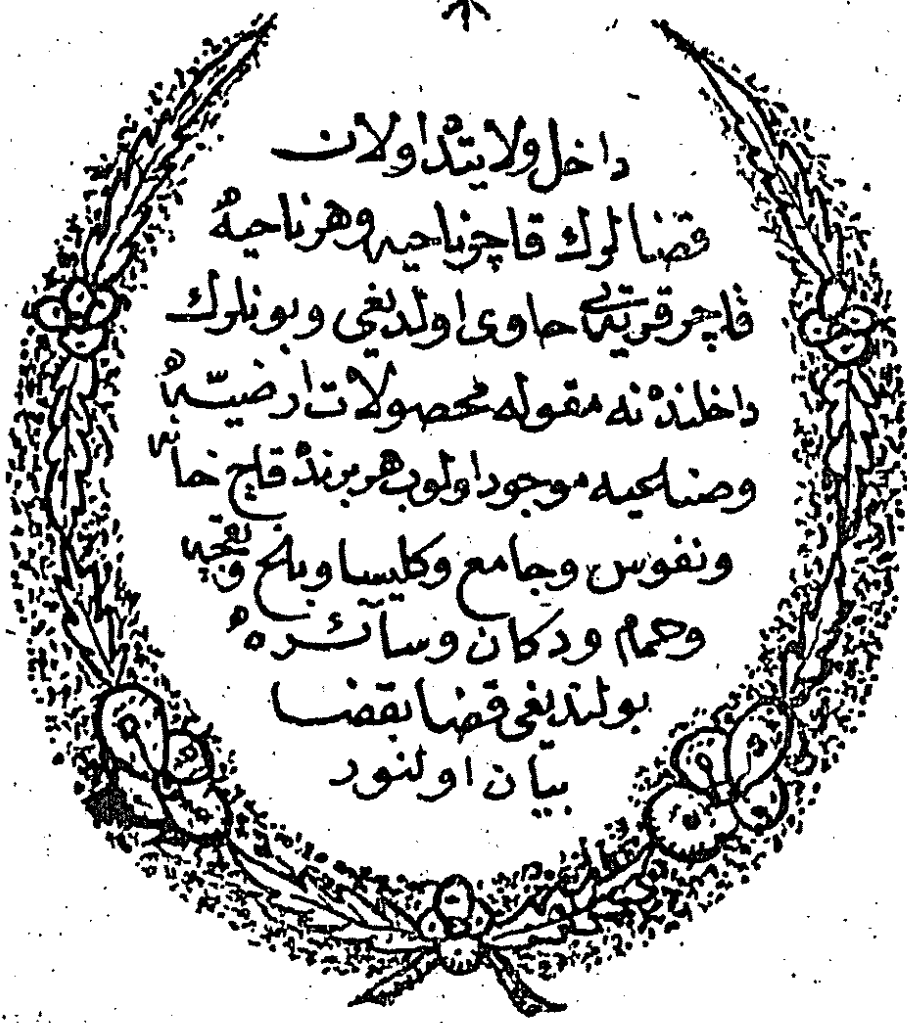 داخل ولایتده اولان
قضالرك قاچر ناحیه و هر ناحیه
قاچر قریه یی حاوی اولدیغی و بونلرك
داخلنده نه مقوله محصولات ارضیه
و صناعیه موجود اولوب هر برنده قاچ خانه
و نفوس و جامع و كلیسا و بلخ و بقچه
و حمام و دكان و سائره
بولندیغی قضا بقضا
بیان اولنور